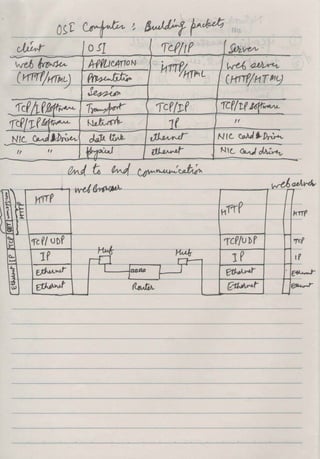 OSI Computer : Building packets
client OSI TCP/IP Server
web browser APPLICATION HTTP/HTML web server
(HTTP/HTML) Presentation (HTTP/HTML)
Session
TCP/IP Software Transport TCP/IP TCP/IP Software
TCP/IP Software Network IP "
NIC Card & Driver data link ethernet NIC Card & Driver
" " physical ethernet NIC Card driver
end to end communication
web browser web server
HTTP HTTP HTTP
TCP/UDP TCP/UDP TCP
IP Hub Hub IP IP
Ethernet Ethernet Ethernet
Ethernet Router Ethernet Ethernet
Ethernet IP TCP HTTP